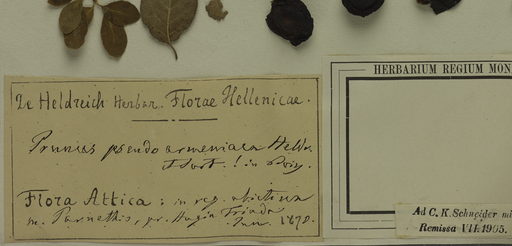 De Heldreich Herbar. Florae Hellenicae.
Prunus pseudo armeniaca Heldr.
! in
Flora Attica : in reg. abietina
m. Parnethis, pr. Hagia Triada
Jun. 1878.
HERBARIUM REGIUM MON
Ad C. K. Schneider mi
Remissa VII. 1905.